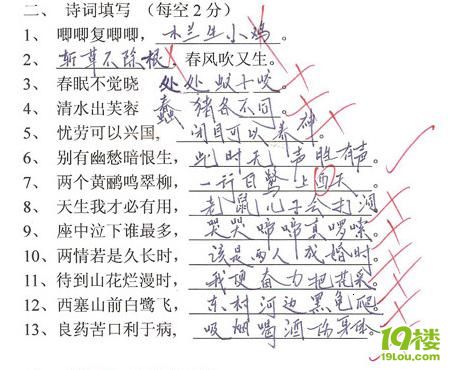 二、 诗词填写 （每空2分）
1、 唧唧复唧唧，木兰生小鸡。
2、 斩草不除根，春风吹又生。
3、 春眠不觉晓 处处蚊子咬。
4、 清水出芙蓉 蠢猪各不同。
5、 忧劳可以兴国，闭目可以养神。
6、 别有幽愁暗恨生，此时无声胜有声。
7、 两个黄鹂鸣翠柳，一行白鹭上青天。
8、 天生我才必有用，老鼠儿子会打洞。
9、 座中泣下谁最多，哭哭啼啼真啰嗦。
10、 两情若是久长时，该是两人成婚时。
11、 待到山花烂漫时，我便奋力把花采。
12、 西塞山前白鹭飞，东村河边黑龟爬。
13、 良药苦口利于病，吸烟喝酒伤身体。
19楼
19lou.com